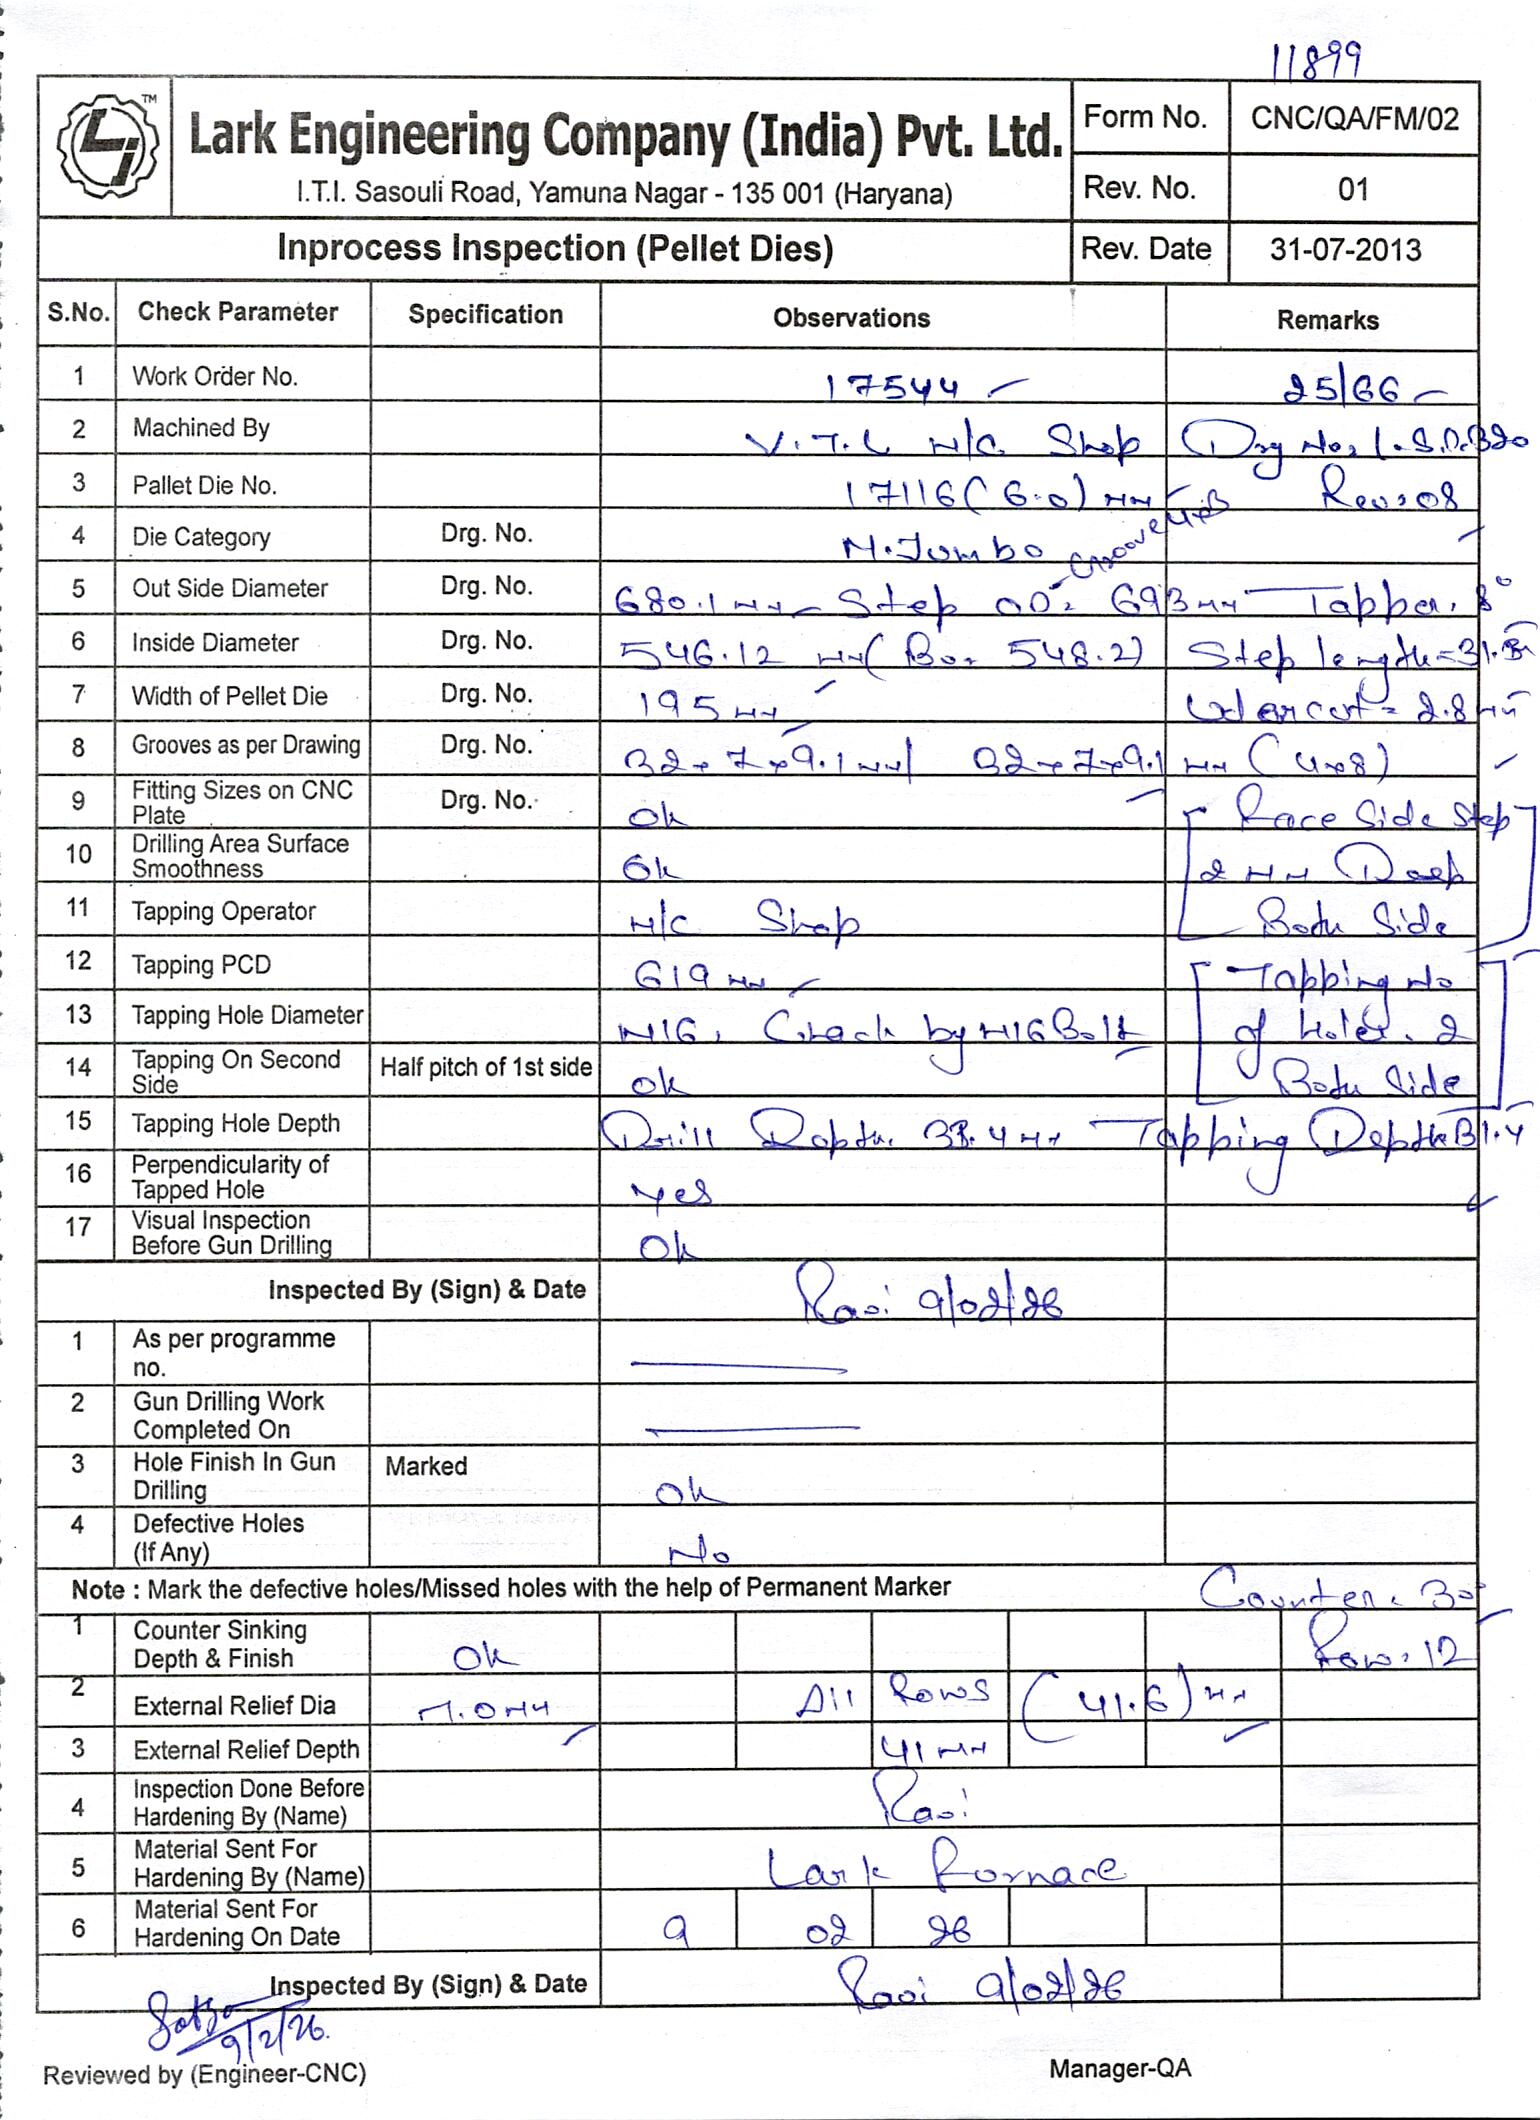 11899
TM
Lark Engineering Company (India) Pvt. Ltd.
I.T.I. Sasouli Road, Yamuna Nagar - 135 001 (Haryana)
Form No. CNC/QA/FM/02
Rev. No. 01
Inprocess Inspection (Pellet Dies) Rev. Date 31-07-2013
S.No. Check Parameter Specification Observations Remarks
1 Work Order No. 17544 25/66
2 Machined By V.T.L M/C Shop Drg No:
3 Pallet Die No. 17116 (6.0) mm Rev: 08
4 Die Category Drg. No. M.Jumbo Groove 4x8
5 Out Side Diameter Drg. No. 680.1 mm Step OD = 693 mm Tapper. 8°
6 Inside Diameter Drg. No. 546.12 mm (Bo. 548.2) Step length =
7 Width of Pellet Die Drg. No. 195 mm Undercut = 2.8 mm
8 Grooves as per Drawing Drg. No. 32 x 7 x 9.1 mm / 32 x 7 x 9.1 mm (4x8)
9 Fitting Sizes on CNC Plate Drg. No. Ok Race Side Step
10 Drilling Area Surface Smoothness Ok 2 mm Deep
11 Tapping Operator M/C Shop Both Side
12 Tapping PCD 619 mm Tapping No
13 Tapping Hole Diameter M16, Check by M16 Bolt of holes. 2
14 Tapping On Second Side Half pitch of 1st side Ok Both Side
15 Tapping Hole Depth Drill Depth. 38.4 mm Tapping Depth 31.4
16 Perpendicularity of Tapped Hole Yes
17 Visual Inspection Before Gun Drilling Ok
Inspected By (Sign) & Date Ravi 9/02/26
1 As per programme no.
2 Gun Drilling Work Completed On
3 Hole Finish In Gun Drilling Marked Ok
4 Defective Holes (If Any) No
Note : Mark the defective holes/Missed holes with the help of Permanent Marker Counter. 30°
1 Counter Sinking Depth & Finish Ok Row. 12
2 External Relief Dia 7.0 mm All Rows (41.6) mm
3 External Relief Depth 41 mm
4 Inspection Done Before Hardening By (Name) Ravi
5 Material Sent For Hardening By (Name) Lark Fornace
6 Material Sent For Hardening On Date 9 02 26
Inspected By (Sign) & Date Ravi 9/02/26
9/2/26.
Reviewed by (Engineer-CNC) Manager-QA